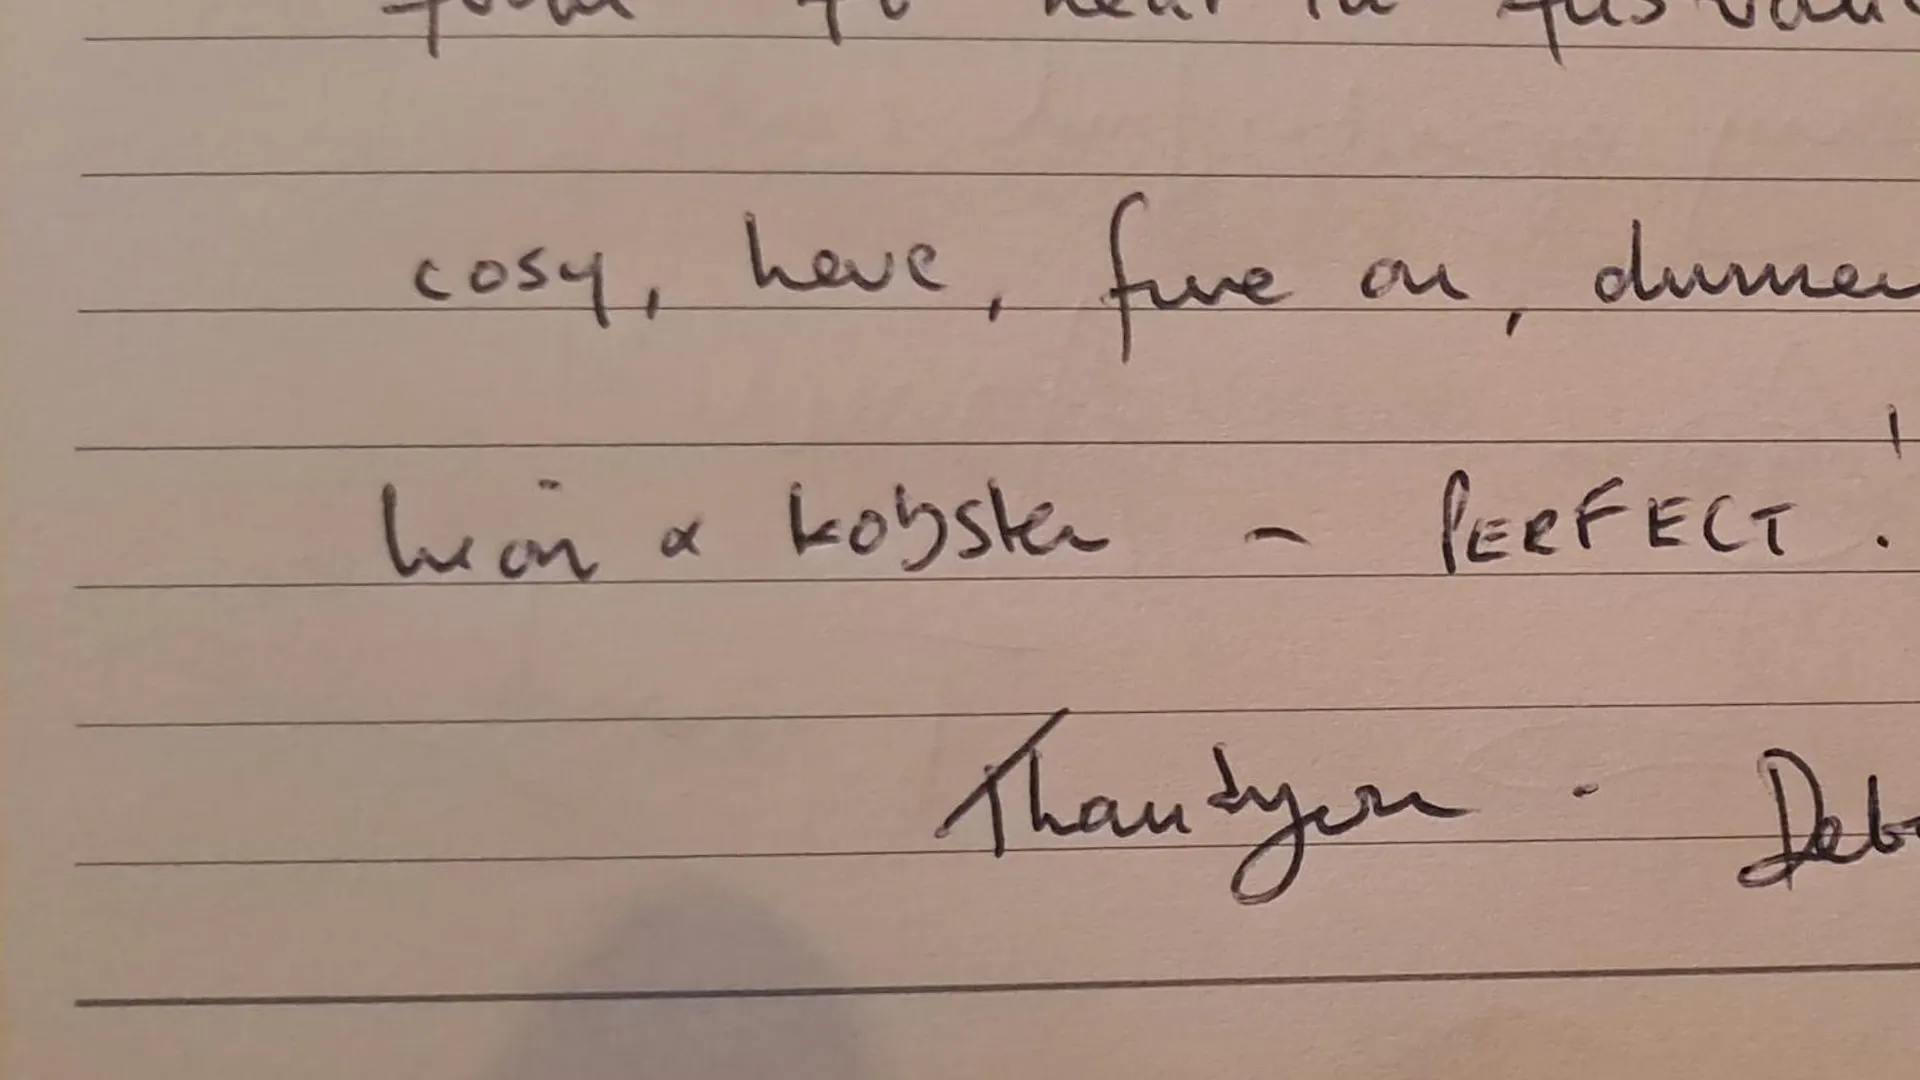 to hear in
cosy, here, fire on, dinner
& lobster - PERFECT!
Thankyou. Deb